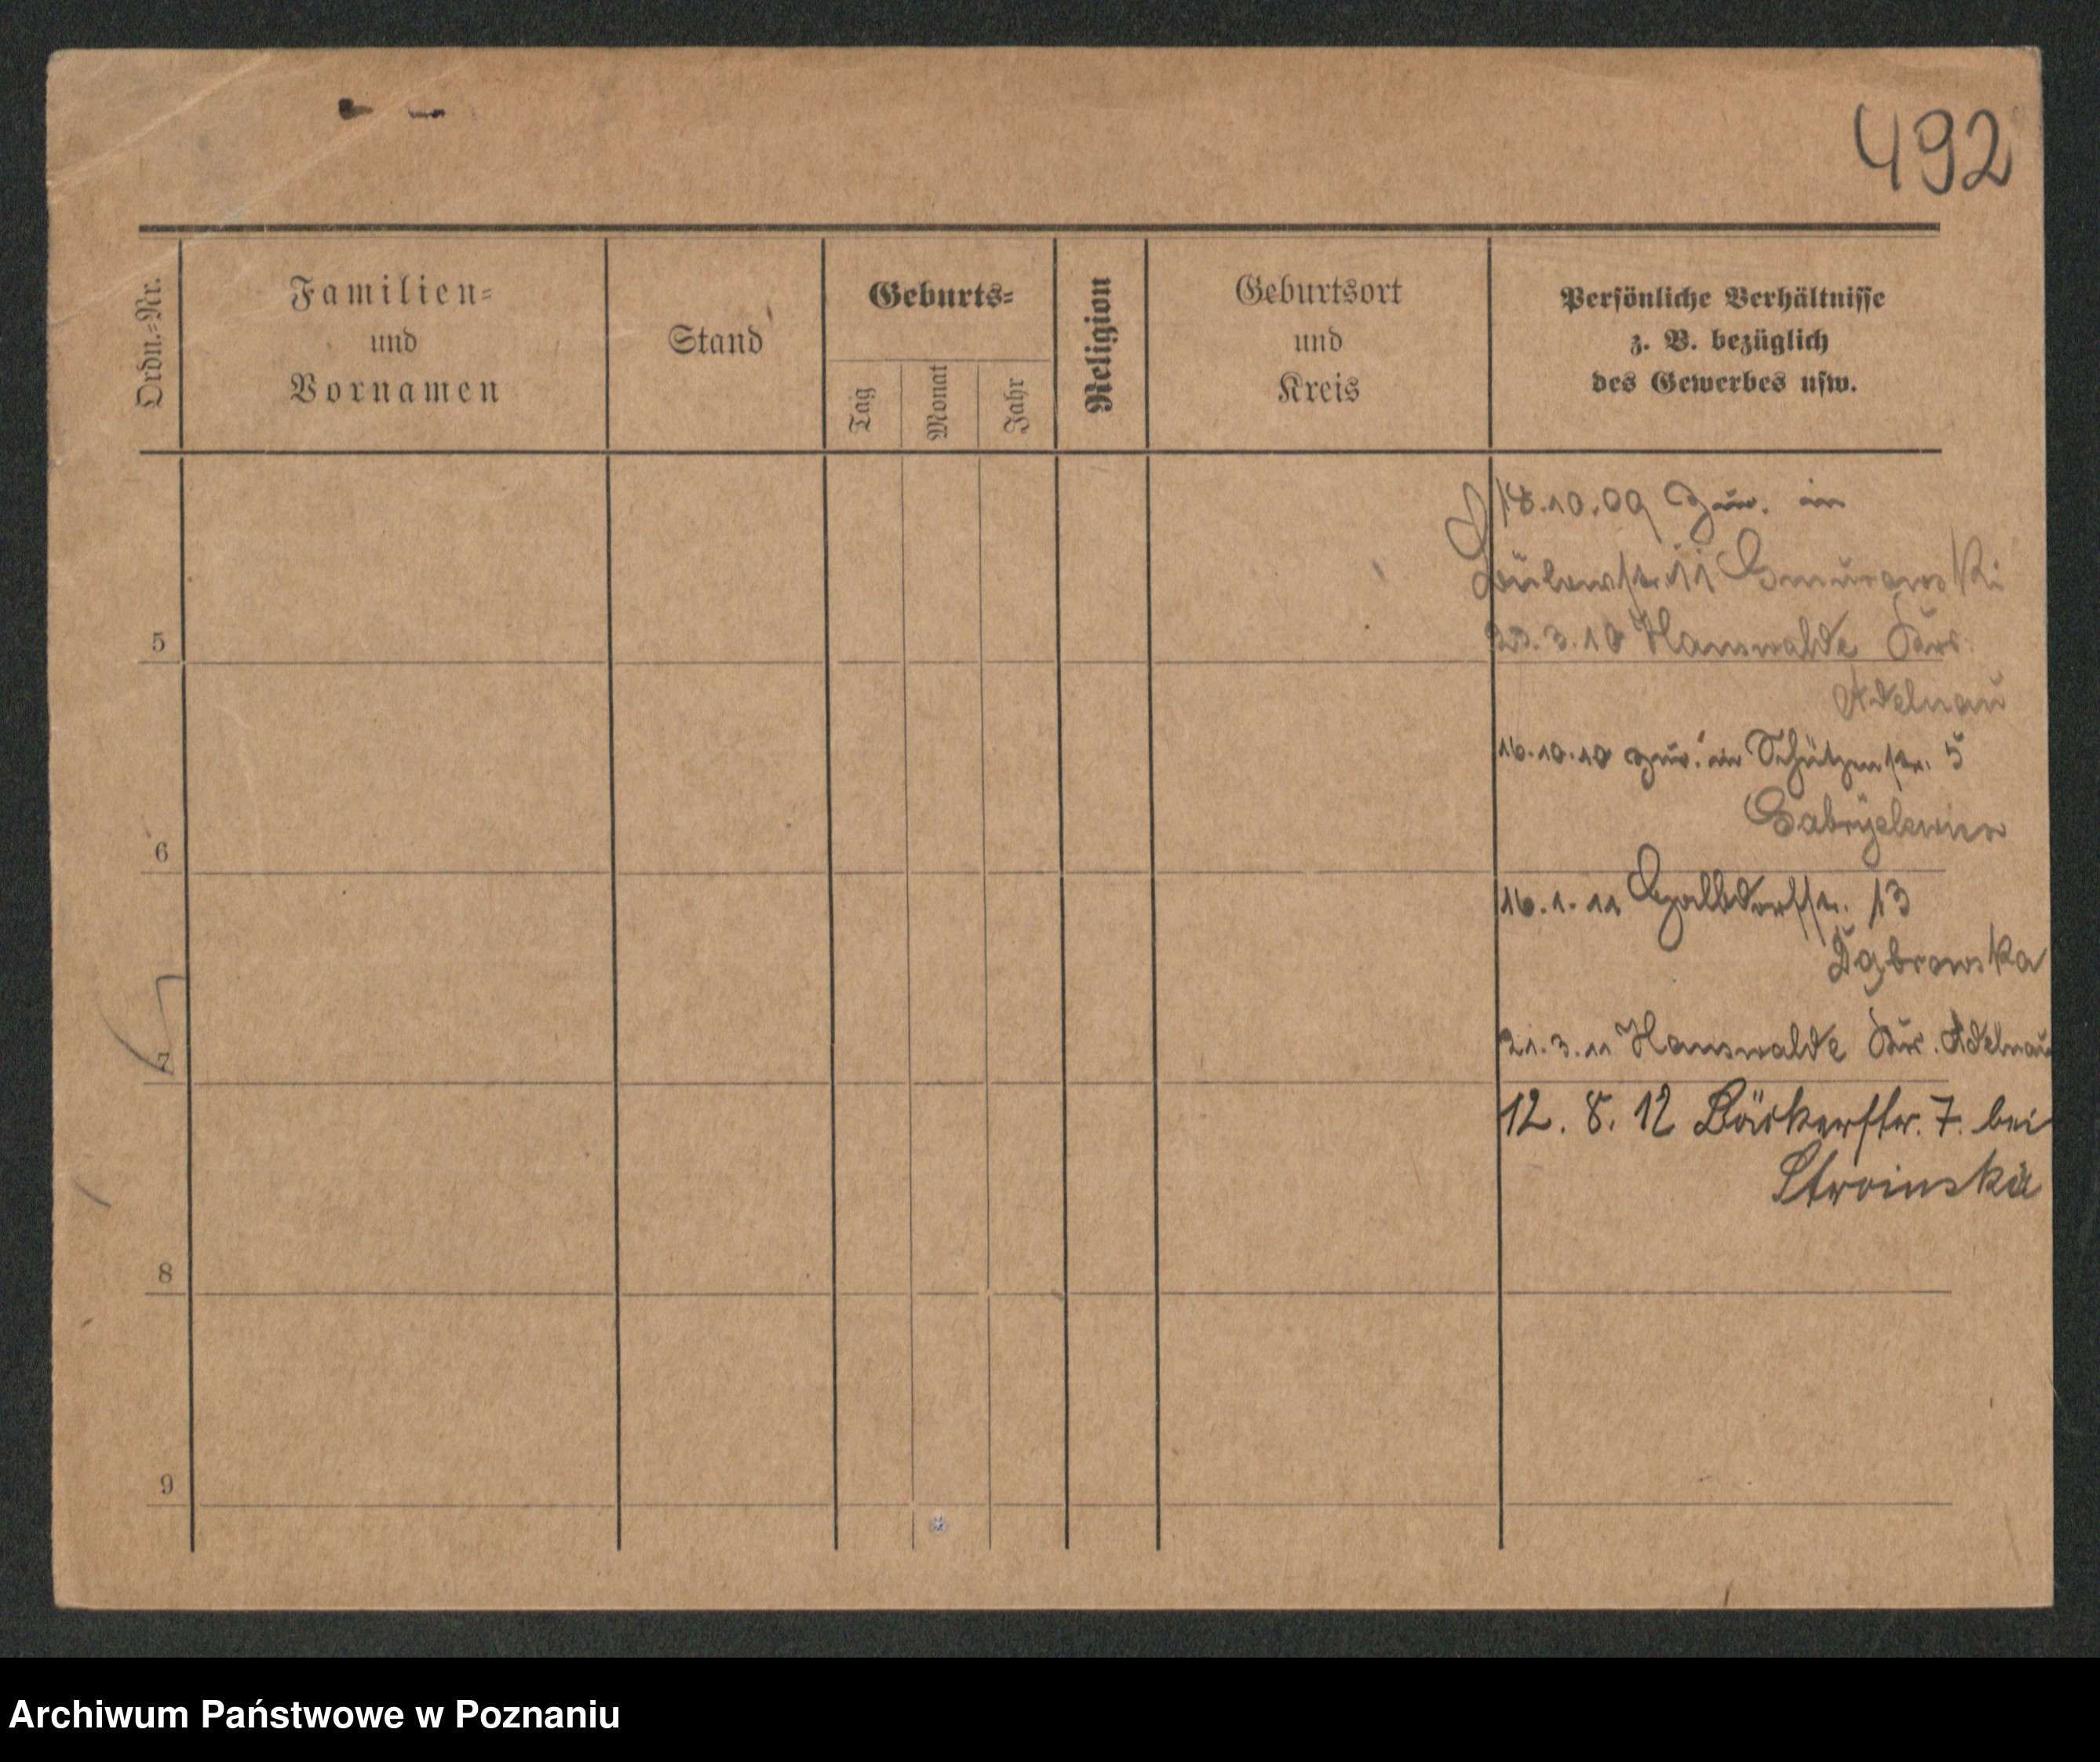 492
Ordn.-Nr.
Familien-
und
Vornamen
Stand
Geburts-
Tag
Monat
Jahr
Religion
Geburtsort
und
Kreis
Persönliche Verhältnisse
z. B. bezüglich
des Gewerbes usw.
18.10.09 zur. in
Bülowstr. 11 Gmurowski
23.3.10 Hanswalde Krs.
5
Adelnau
16.10.10 zur. in Schützenstr. 5
6
16.1.11 Halbdorfstr. 13
Dąbrowska
21.3.11 Hanswalde Krs. Adelnau
7
12. 8. 12 Bäckerstr. 7. bei
Stroinska
8
9
Archiwum Państwowe w Poznaniu